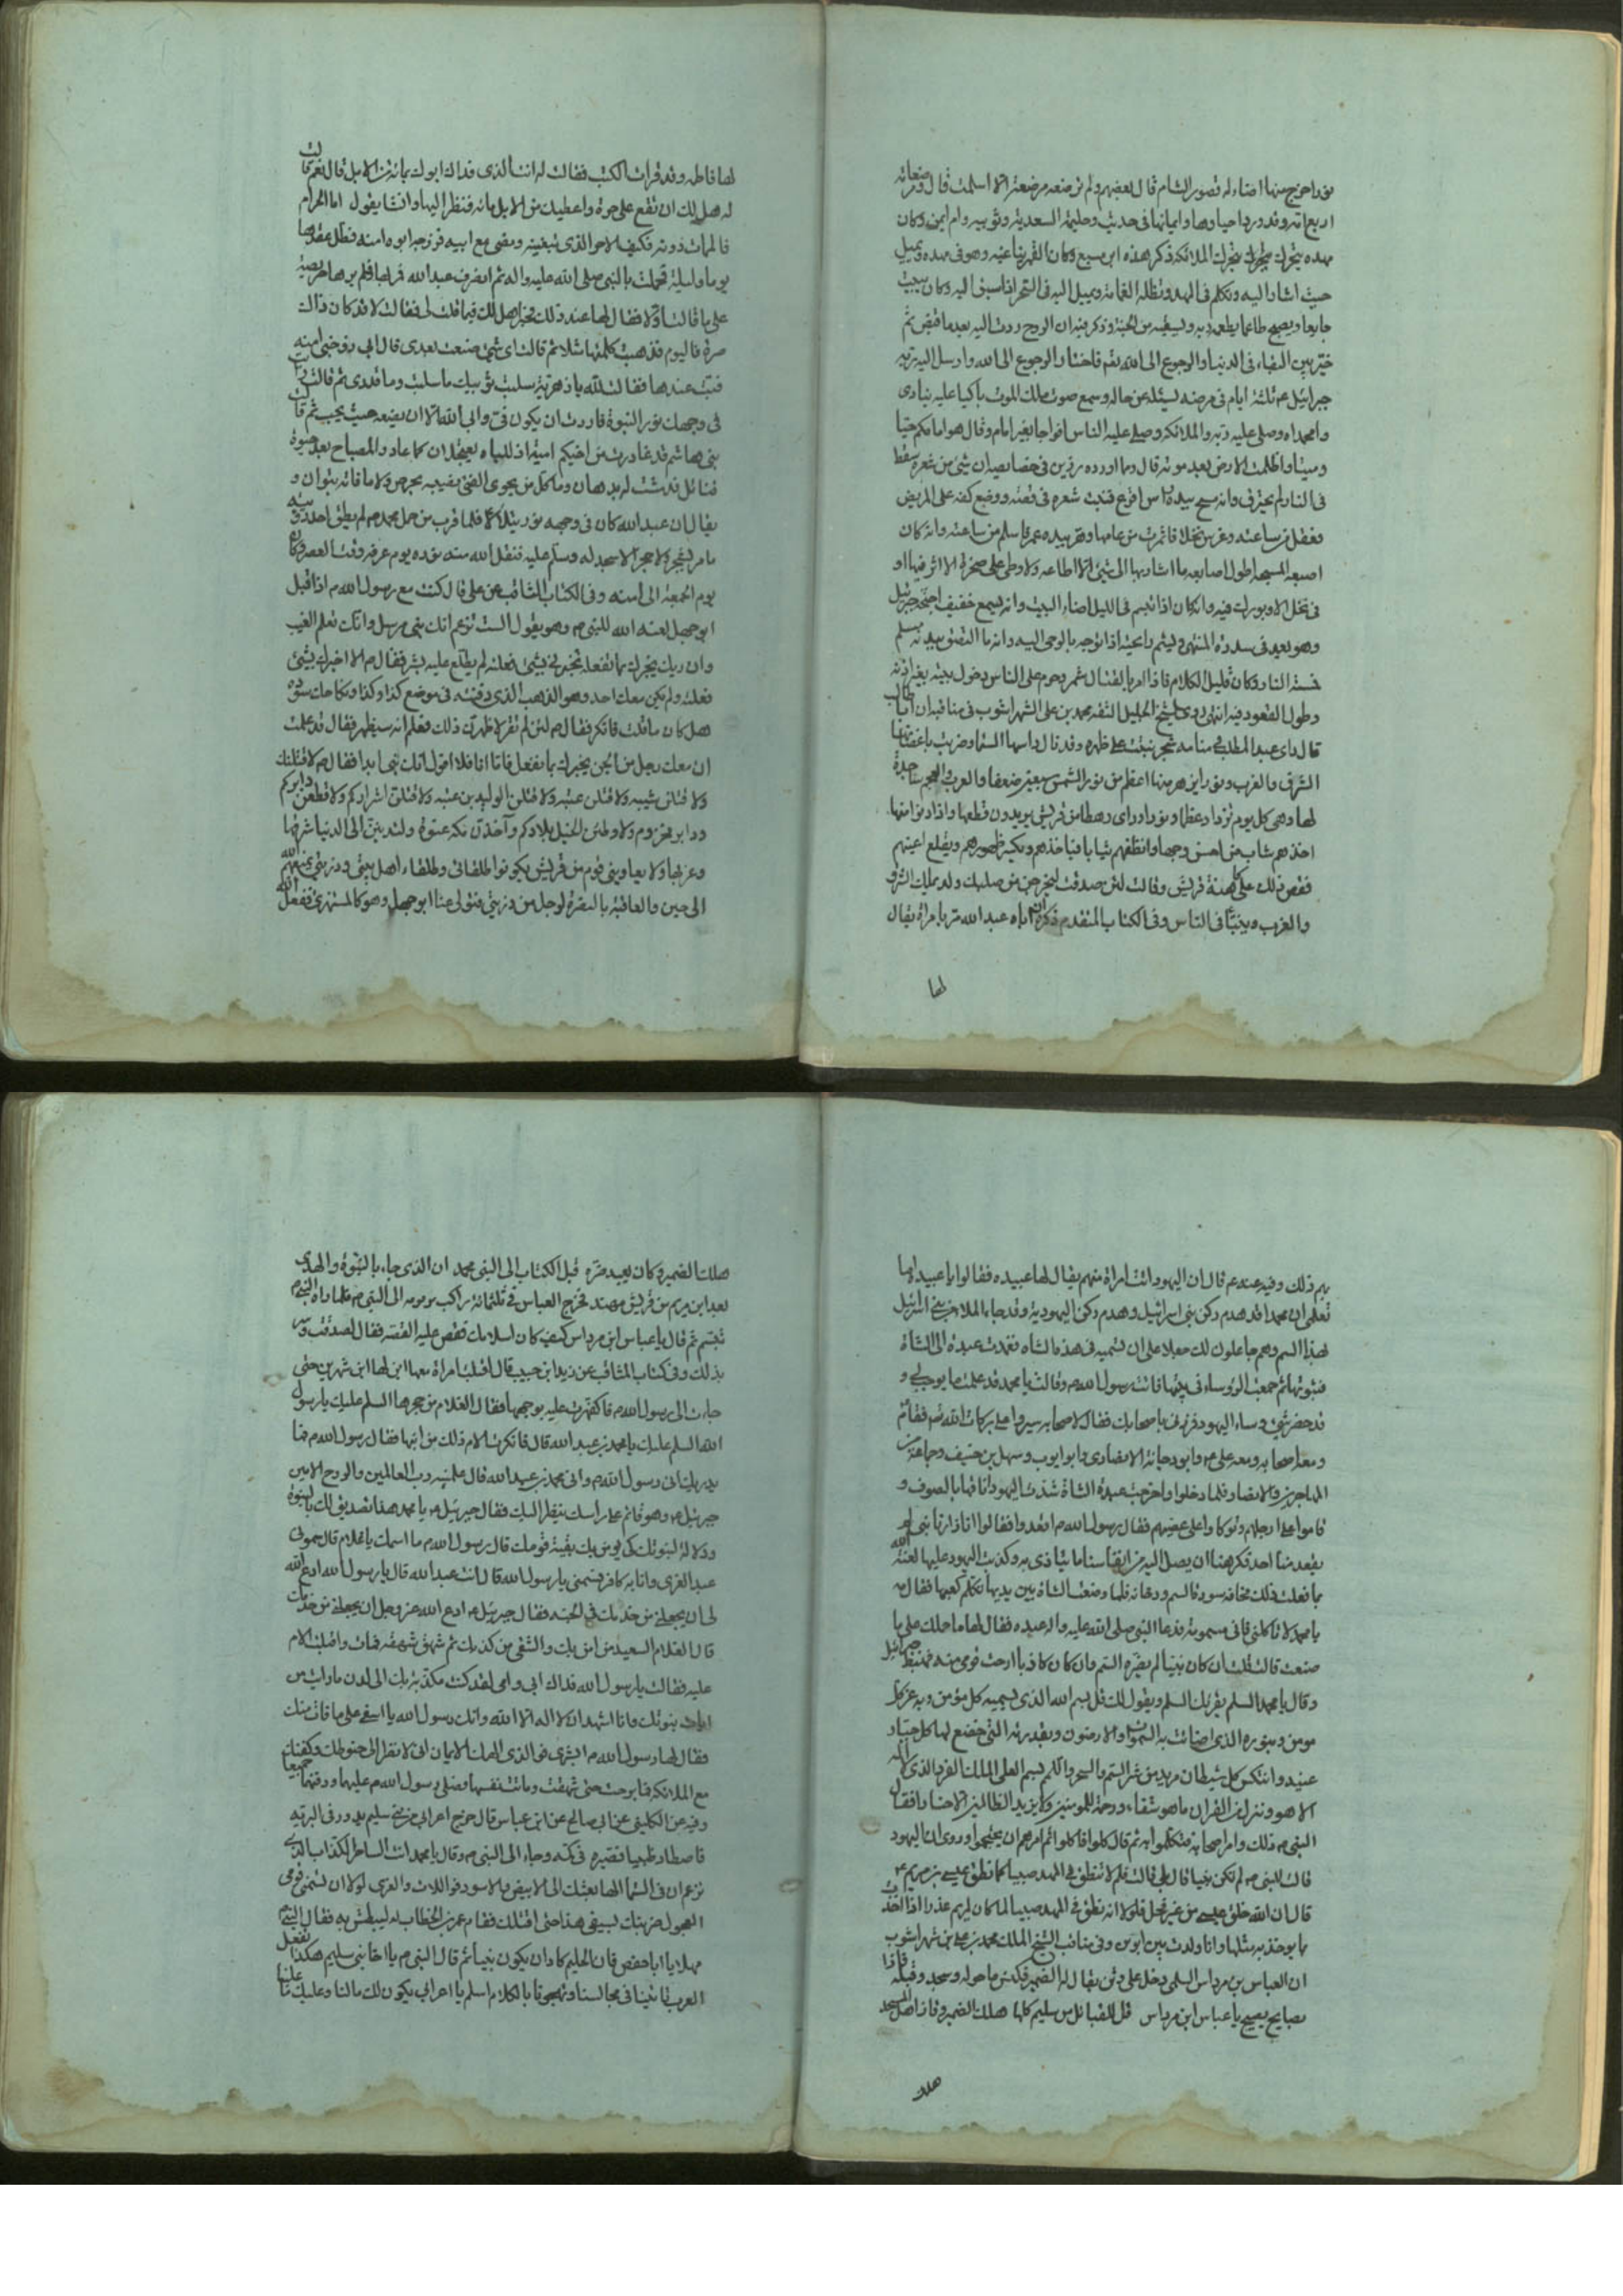 نورا خرج منها اضاء له قصور الشام قال بعضهم ولم ترضعه مرضعة الا اسلمت قال ومرضعاته
اربع امه وقد ورد احياؤها وايمانها في حديث وحليمة السعدية وثويبه وام ايمن وكان
مهده يتحرك بتحريك الملائكة ذكر هذه ابن سبع وكان القمر يناغيه وهو في مهده ويميل
حيث اشار اليه وتكلم في المهد وتظله الغمامة ويميل اليه في الشجر اذا سبق اليه وكان يبيت
جايعا ويصبح طاعما يطعمه ربه ويسقيه من الجنة وذكر فيه ان الروح ردت اليه بعد ما قبض ثم
خير بين البقاء في الدنيا والرجوع الى الله نعم فاختار الرجوع الى الله وارسل اليه ربه
جبرائيل ع ثلثة ايام في مرضه ليسئله عن حاله وسمع صوت ملك الموت باكيا عليه ينادي
وامحمداه وصلى عليه ربه والملائكة وصلى عليه الناس افواجا بغير امام وقال هو امامكم حيا
وميتا واظلمت الارض بعد موته قال ومما اورده رزين في خصايصه ان شيئ من شعره سقط
في النار لم يحترق وانه مسح بيده راس اقرع فنبت شعره في وقته ووضع كفه على المريض
فعقل من ساعته وغرس نخلا فاثمرت من عامها وهز بيده عمر فاسلم من ساعته وانه كان
اصبعه المسبحة اطول اصابعه ما اشار بها الى شيئ الا اطاعه ولا وطى على صخرة الا اثر فيها او
في نخل الا وبورك فيه وانه كان اذا تبسم في الليل اضاء البيت وانه يسمع خفيف اجنحة جبرئيل
وهو بعيد في سدرة المنتهى ويشم رايحته اذا توجه بالوحي اليه وانه ما التصق ببدنه مسلم
فتمسه النار وكان قليل الكلام فاذا امر بالقتال شمر وحرم على الناس دخول بيته بغير اذنه
وطول القعود فيه انتهى روى الشيخ الجليل الثقه محمد بن على الشهراشوب في مناقبه ان ابا طالب
قال راى عبد المطلب في منامه شجرة نبتت على ظهره وقد نال راسها السماء وضربت باغصانها
الشرق والغرب ونورا يزهر منها اعظم من نور الشمس سبعين ضعفا والعرب والعجم ساجدة
لها وهي كل يوم تزداد عظما ونورا وراى رهطا من قريش يريدون قطعها واذا دنوا منها
اخذهم شاب من احسن وجها وانظفهم ثيابا فياخذهم ويكسر ظهورهم ويقلع اعينهم
فقص ذلك على كاهنة قريش وقالت لئن صدقت ليخرجن من صلبك ولد يملك الشرق
والغرب وينبئ في الناس وفي الكتاب المتقدم ذكره ان اباه عبد الله مر بامراة يقال
لها
لها فاطمه وقد قرات الكتب فقالت له انت الذي فداك ابوك بمائة من الابل قال نعم قالت
له هل لك ان تقع علي مرة واعطيك من الابل مائه فنظر اليها وانشا يقول اما الحرام
فالممات دونه فكيف لامر الذي تبغينه ومضى مع ابيه فزوجه ابوه امنه فظل عندها
يوما وليلة فحملت بالنبي صلى الله عليه واله ثم انصرف عبد الله فمر بها فلم يرها حريصة
على ما قالت اولا فقال لها عند ذلك مختبرا هل لك فيما قلت لي فقالت لا قد كان ذاك
مرة فاليوم فذهبت كلمتها مثلا ثم قالت اي شيئ صنعت بعدي قال ابي زوجني امنه
فبت عندها فقالت لله ما زهرية سلبت ثوبيك ما سلبت وما تدري ثم قالت رايت
في وجهك نور النبوة فاردت ان يكون في وابى الله الا ان يضعه حيث يحب ثم قالت
بني هاشم قد غادرت من اخيكم امينة اذ للباه يعتلجان كما غادر المصباح بعد خبوة
فتائل قد شبت له بدهان وما كل من يحوى الفتى بنصيبه بحرص ولا ما فاته بتوان و
يقال ان عبد الله كان في وجهه نور يتلالا فلما قرب من حمل محمد ص لم يطق احد رؤيته
ما مر بشجر ولا حجر الا سجد له وسلم عليه فنقل الله منه نوره يوم عرفه وقت العصر وكان
يوم الجمعة الى امنه وفي الكتاب المناقب عن علي قال كنت مع رسول الله ص اذ اقبل
ابو جهل لعنه الله للنبي ص وهو يقول الست تزعم انك نبي مرسل وانك تعلم الغيب
وان ربك يخبرك بما تفعله تخبرني بشيئ فعلته لم يطلع عليه بشر فقال ص الا اخبرك بشيئ
فعلته ولم يكن معك احد وهو الذهب الذي دفنته في موضع كذا وكذا ونكاحك سودة
هل كان ما قلت فانكر فقال ص لئن لم تقر لاظهرن ذلك فعلم انه سيظهر فقال قد علمت
ان معك رجل من الجن يخبرك بما نفعل فاما انا فلا اقول انك نبي ابدا فقال ص لاقتلنك
ولاقتلن شيبه ولاقتلن عتبه ولاقتلن الوليد بن عتبه ولاقتلن اشراركم ولاقطعن دابركم
ودابر مخزوم ولاوطئن الخيل بلادكم وآخذن مكة عنوة ولتدينن الى الدنيا شرقها
وغربها ولا يعاديني قوم من قريش يكونوا طلقائي وطلقاء اهل بيتي وذريتي يمتعهم الله
الى حين والعاقبة بالنصرة لرجل من ذريتي فتولى عنا ابو جهل وهو كالمستهزئ ففعل الله
بهم ذلك وفيه عنه ع قال ان اليهود اتت امراة منهم يقال لها عبيده فقالوا يا عبيده اما
تعلمي ان محمدا قد هدم ركن بني اسرائيل وهدم ركن اليهودية وقد جاء الملا من بني اسرائيل
بهذا السم وهم جاعلون لك جعلا على ان تسميه في هذه الشاه فعمدت عبدة الى الشاة
فشوتها ثم جمعت الرؤساء في بيتها فاتت رسول الله ص وقالت يا محمد قد علمت ما يوجب لي و
قد حضرني رؤساء اليهود فزرني باصحابك فقال لاصحابه سيروا على بركات الله نعم فقام
ومعه اصحابه ومعه على ع وابو دجانة الانصاري وابو ايوب وسهل بن حنيف وجماعة من
المهاجرين والانصار فلما دخلوا واخرجت عبدة الشاة شدت اليهود انافها بالصوف و
قاموا على ارجلهم وتوكاوا على عصيهم فقال رسول الله ص اقعدوا فقالوا انا اذا زارنا نبي لم
يقعد منا احد فكرهنا ان يصل اليه من انفاسنا ما يتاذى به وكذبت اليهود عليها لعنة الله
ما فعلت ذلك مخافة سورة السم ودخانه فلما وضعت الشاة بين يديها تكلم كتفها فقال مه
يا محمد لا تاكلني فاني مسمومة فدعا النبي صلى الله عليه واله عبده فقال لها ما حملك على ما
صنعت قالت قلت ان كان نبيا لم يضره السم وان كان كاذبا ارحت قومي منه فهبط جبرائيل
وقال يا محمد السلم يقرئك السلم ويقول لك قل بسم الله الذي يسميه كل مؤمن وبه عز كل
مومن وبنوره الذي اضائت به السموات والارضون وبقدرته التي خضع لها كل جبار
عنيد وانتكس كل شيطان مريد من شر السم والسحر واللمم بسم العلى الملك الفرد الذي لا اله
الا هو وننزل من القران ما هو شفاء ورحمة للمومنين ولا يزيد الظالمين الا خسارا فقال
النبي ص ذلك وامر اصحابه فتكلموا به ثم قال كلوا فاكلوا ثم امرهم ان يحتجموا وروى اتت اليهود
قالت للنبي ص لم تكن نبيا قال بلى قالت فلم لا تنطق في المهد صبيا كما نطق عيسى بن مريم ع
قال ان الله خلق عيسى من غير فحل فلولا انه نطق في المهد صبيا لما كان لمريم عذر اذ اتخذت
ما يوخذ به مثلها وانا ولدت بين ابوين وفي مناقب الشيخ الملك محمد بن على بن شهراشوب
ان العباس بن مرداس السلمى دخل على وثن يقال له الضمير فكنس ما حوله وسجد وقبله فاذا
بصايح يصيح يا عباس ابن مرداس قل للقبائل من سليم كلها هلك الضمير وفاز اهل المسجد
هلك
هلك الضمير وكان يعبد مرة قبل الكتاب الى النبي محمد ان الذي جاء بالنبوة والهدى
بعد ابن مريم من قريش مهتد فخرج العباس في ثلثمائة راكب من قومه الى النبي ص فلما راه النبي ص
تبسم ثم قال يا عباس ابن مرداس كيف كان اسلامك فقص عليه القصه فقال صدقت وسر
بذلك وفي كتاب المناقب عن زيد ابن حبيب قال اقبلت امراة معها ابن لها ابن شهرين حتى
جاءت الى رسول الله ص فاكفهرت عليه بوجهها فقال الغلام من حجرها السلم عليك يا رسول
الله السلم عليك يا محمد بن عبد الله قال فانكرت الام ذلك من ابنها فقال رسول الله ص ما
يدريك اني رسول الله ص واني محمد بن عبد الله قال علمنيه رب العالمين والروح الامين
جبرئيل ع وهو قائم على راسك ينظر اليك فقال جبرئيل ع يا محمد هذا تصديق لك بالنبوة
ودلالة لنبوتك كى يومن بك بقية قومك قال رسول الله ص ما اسمك يا غلام قال سموني
عبد العزى وانا به كافر فسمني يا رسول الله قال انت عبد الله قال يا رسول الله ادع الله
لي ان يجعلني من خدمك في الجنه فقال جبرئيل ع ادع الله عز وجل ان يجعلني من خدمك
قال الغلام السعيد من امن بك والشقي من كذبك ثم شهق شهقة فمات واقبلت الام
عليه فقالت يا رسول الله فداك ابي وامي لقد كنت مكذبة بك الى لدن ما رايت من
ايات بنوتك وانا اشهد ان لا اله الا الله وانك رسول الله يا اسفي على ما فات منك
فقال لها رسول الله ص ابشرى فوالذي الهمك الايمان اني لانظر الى حنوطك وكفنك
مع الملائكة فما برحت حتى شهقت وماتت نفسها وصلى رسول الله ص عليها ودفنها جميعا
وفيه عن الكليني عن ابي صالح عن ابن عباس قال خرج اعرابي من بني سليم يدور في البرية
فاصطاد ظبيا فصيره في كمه وجاء الى النبي ص وقال يا محمد انت الساحر الكذاب الذي
تزعم ان في السماء الها بعثك الى الابيض والاسود فواللات والعزى لولا ان تسمني قومي
العجول ضربتك بسيفي هذا حتى اقتلك فقام عمر بن الخطاب له ليبطش به فقال النبي ص
مهلا يا ابا حفص فان الحليم كاد ان يكون نبيا ثم قال النبي ص يا اخا بني سليم هكذا تفعل
العرب تاتينا في مجالسنا وتهجونا بالكلام اسلم يا اعرابي يكون لك ما لنا وعليك ما علينا